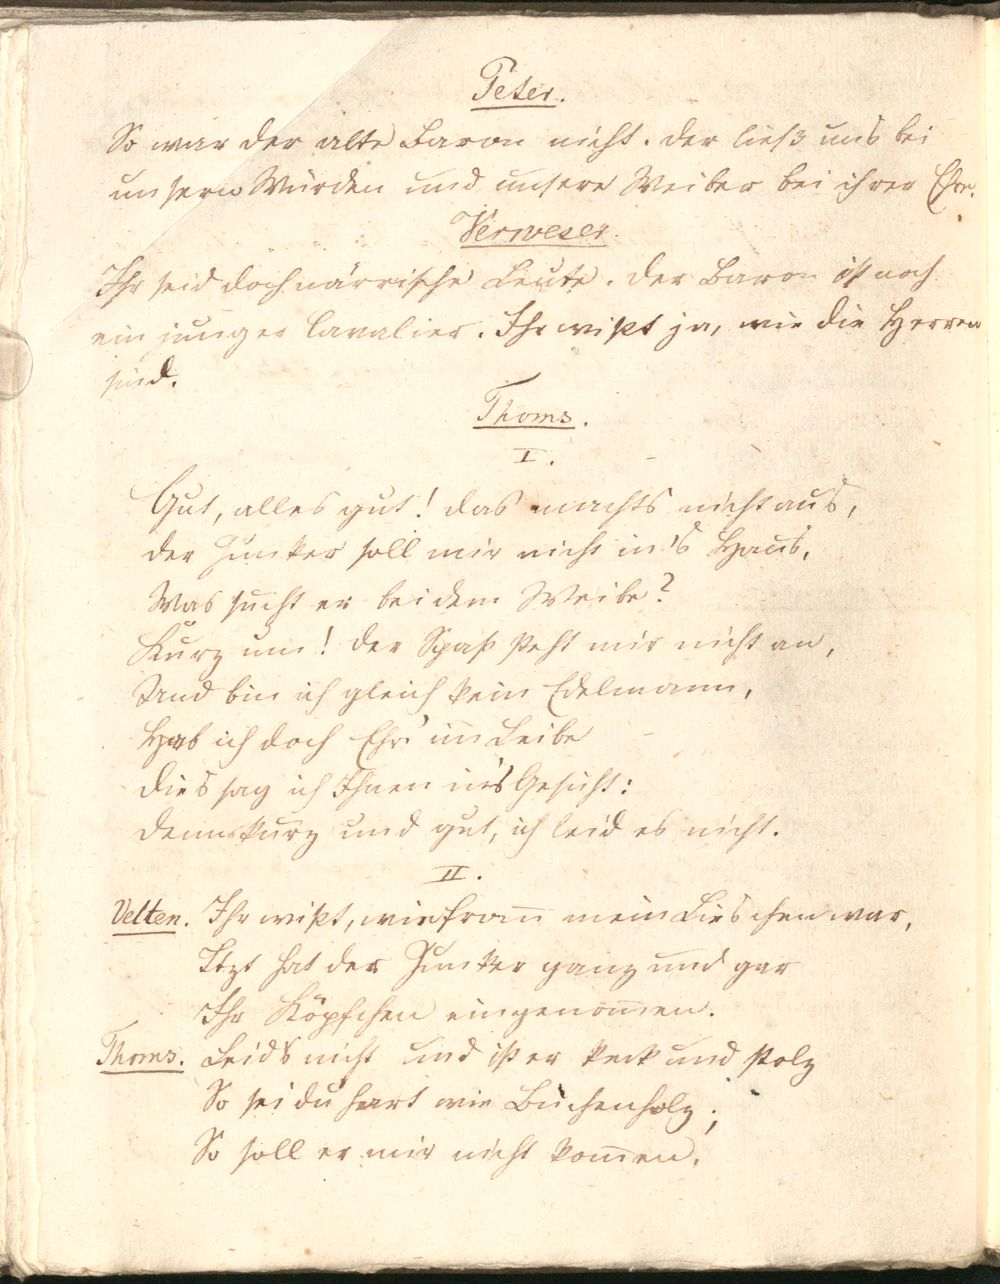 Peter.
So war der alte Baron nicht. Der ließ uns bei
unsern Würden und unsere Weiber bei ihrer Ehre.
Verweser.
Ihr seid doch närrische Leute. Der Baron ist noch
ein junger Cavalier. Ihr wißt ja, wie die Herren
sind.
Thoms.
I.
Gut, alles gut! das machts nicht aus,
Der Junker soll mir nicht in's Haus,
Was sucht er bei dem Weibe?
Kurz um! der Spaß steht mir nicht an,
Und bin ich gleich kein Edelmann,
Hab ich doch Ehr' im Leibe
Dies sag ich Ihnen in's Gesicht:
Denn kurz und gut, ich leid es nicht.
II.
Velten. Ihr wißt, wie from̅ mein Lieschen war,
Itzt hat der Junker ganz und gar
Ihr Köpfchen eingenom̅en.
Thoms. Leids nicht und ist er keck und stolz
So sei du hart wie Buchenholz;
So soll er mir nicht kom̅en.